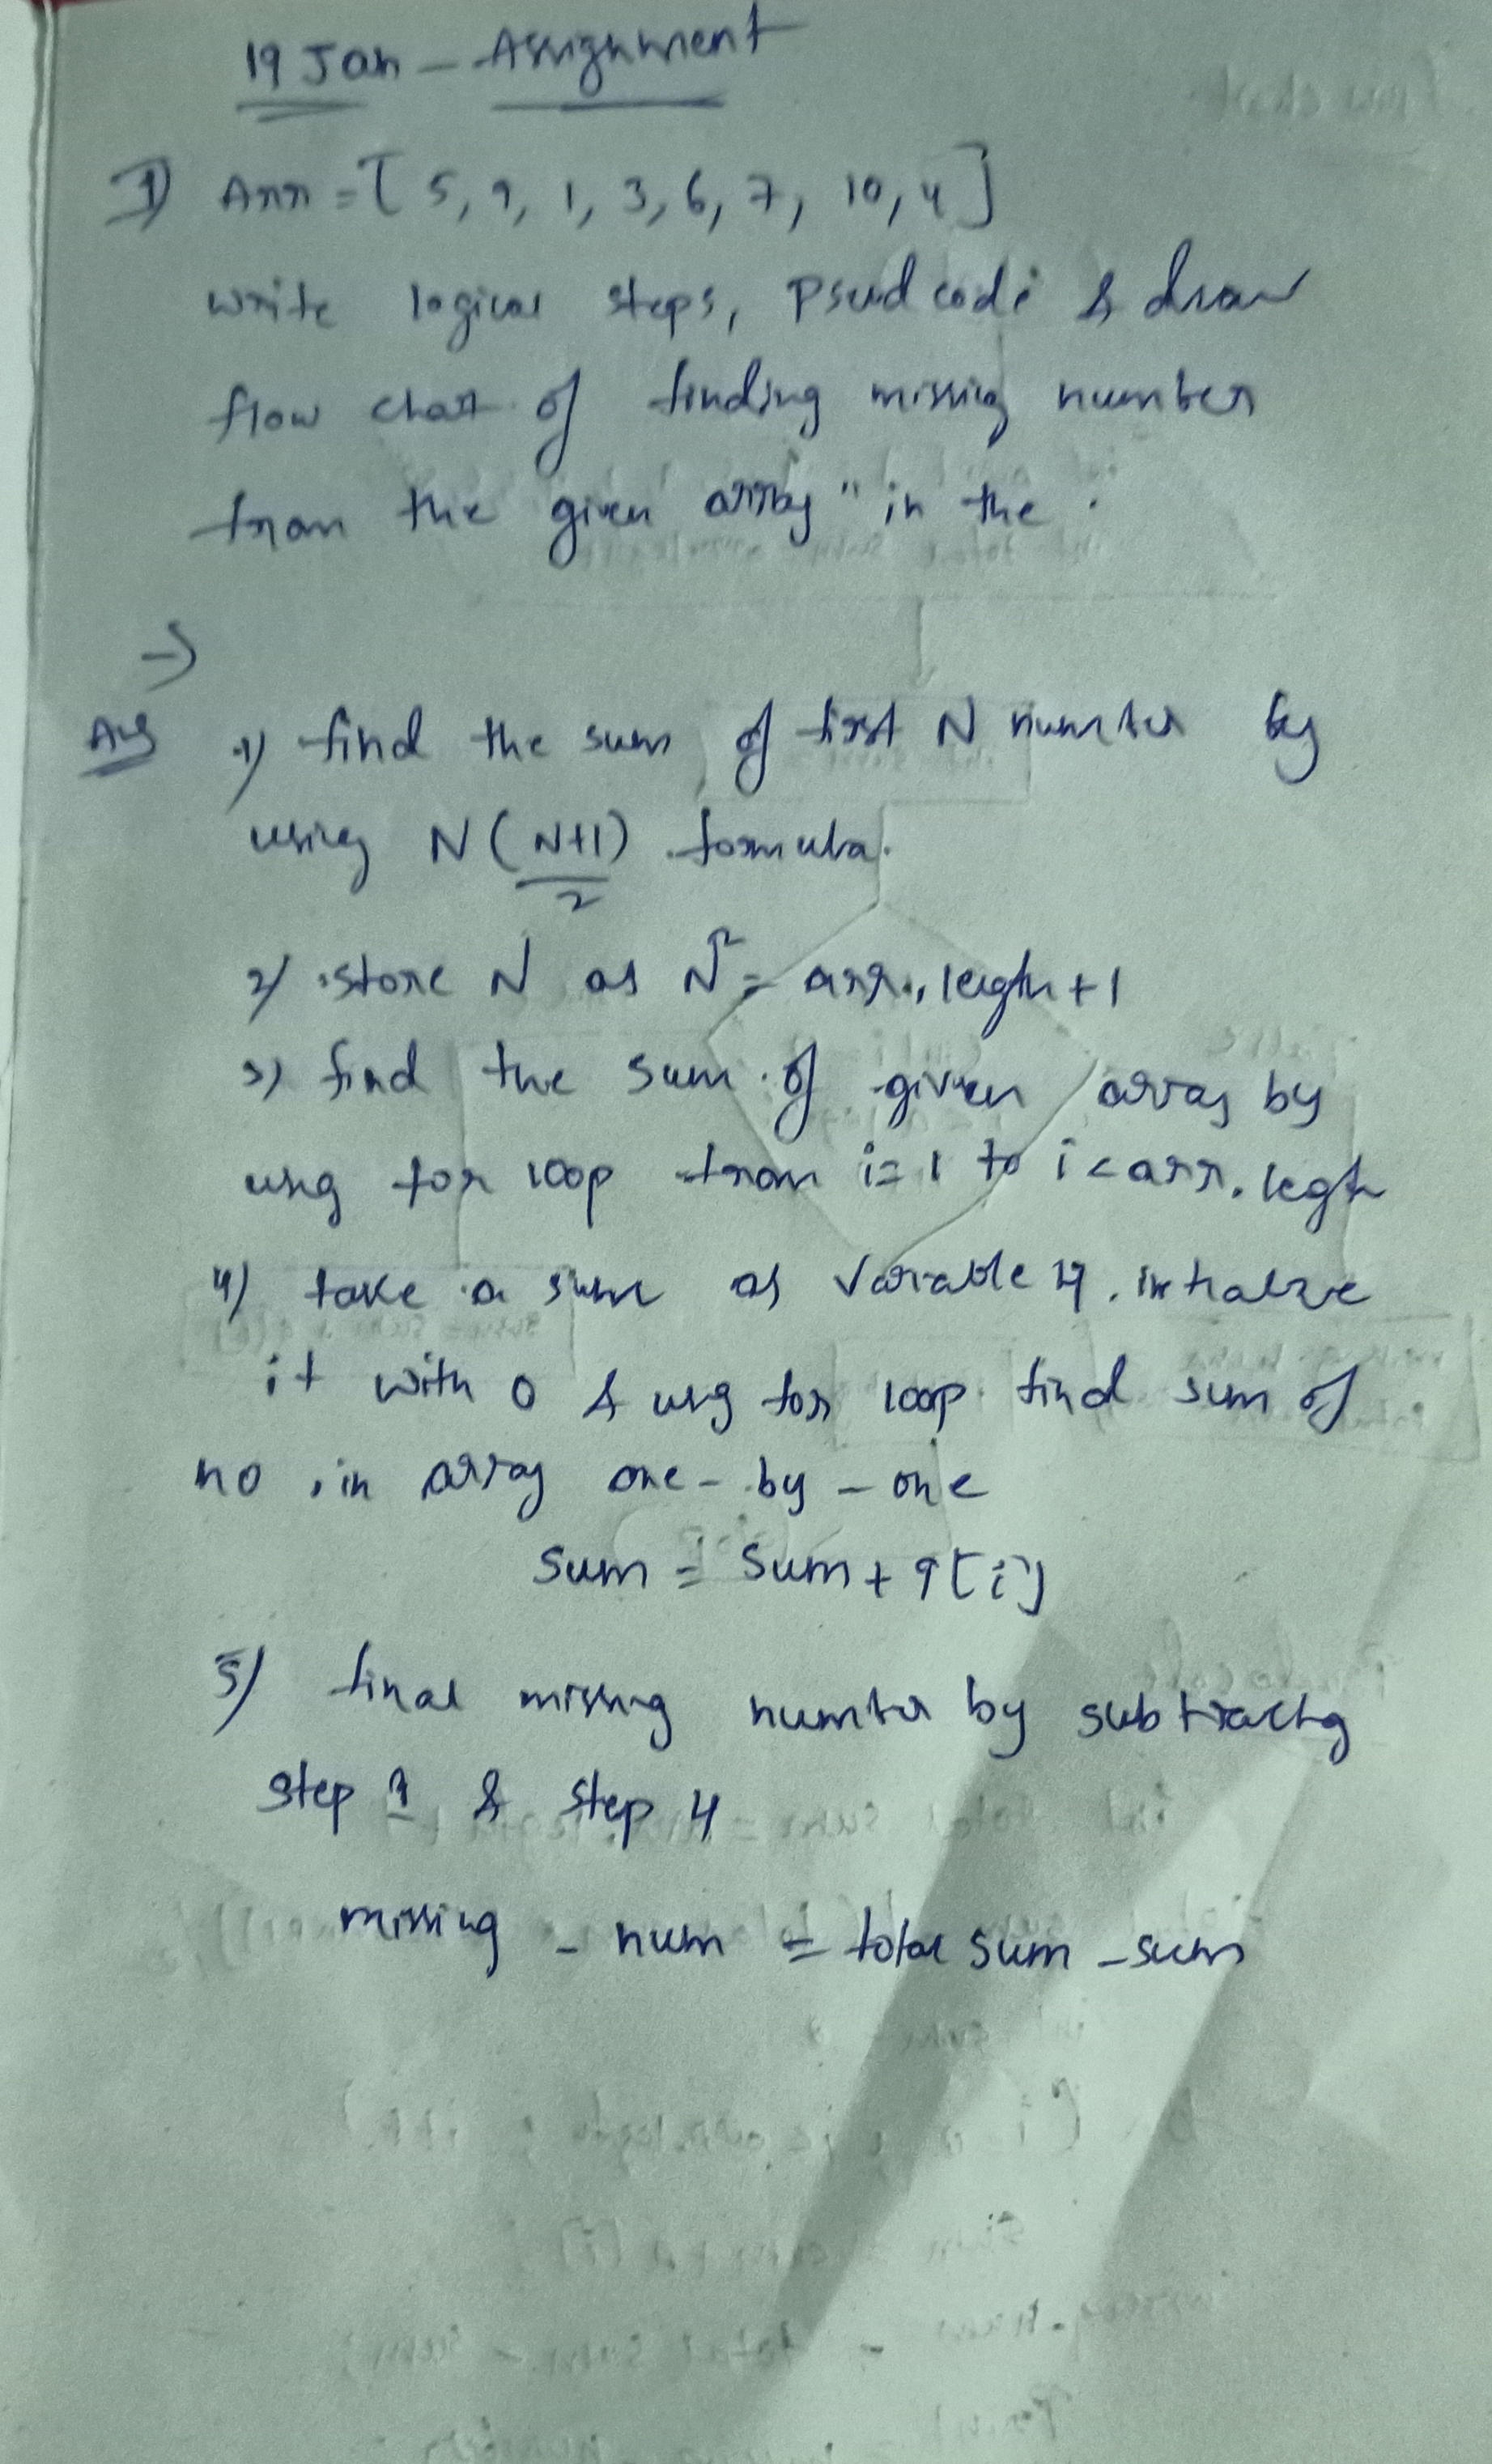 19 Jan - Assignment
1) Arr = [5, 9, 1, 3, 6, 7, 10, 4]
write logical steps, Pseudcode & draw
flow chart of finding missing number
from the given array" in the .
→
Ans 1) find the sum of first N number by
using N(N+1)/2 formula.
2) store N as N = arr.length+1
3) find the sum of given array by
usng for loop from i=1 to i<arr.legth
4) take a sum as variable
it with 0 & usng for loop find sum of
no. in array one-by-one
sum = sum + a[i]
5) final missing number by subtractng
step 1 & step 4
missing - num = total sum - sum